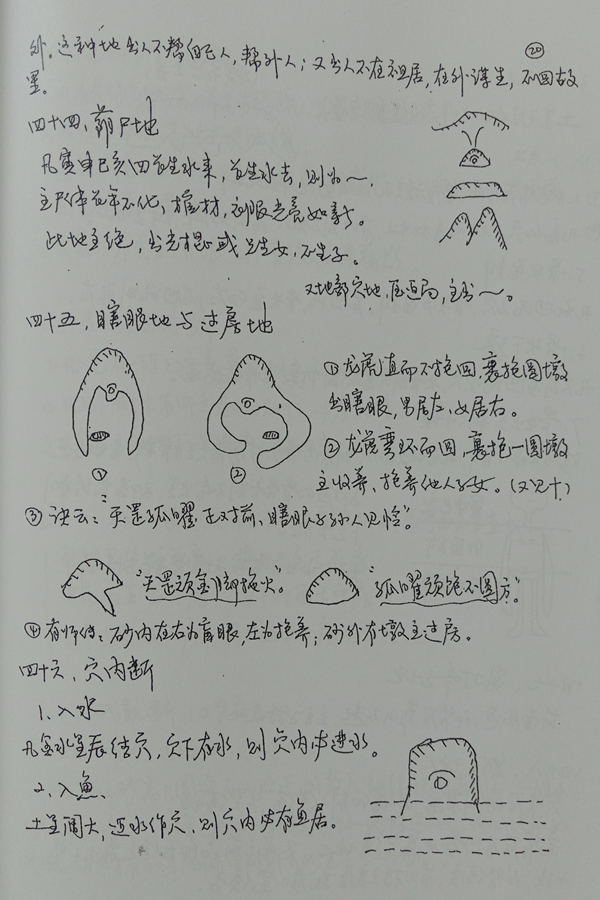 外。这种地出人不帮自己人,帮外人;又出人不在祖居,在外谋生,不回故
里。
⑳
四十四、荫尸地
凡寅申巳亥四长生水来,长生水去,则为~,
主尸体百年不化,棺材,衣服光亮如新。
此地主绝,出光棍或只生女,不生子。
又地部穴地,压迫局,主出~。
四十五、瞎眼地与过房地
①龙虎直而不抱回,裹抱圆墩
出瞎眼,男居左,女居右。
②龙虎弯环而回,裹抱一圆墩
主收养、抱养他人子女。(又见十)
① ②
③诀云:“天罡孤曜正对前、瞎眼子孙人见怜”。
“天罡头金脚拖火”。 “孤曜顽饱不圆方”。
④有师传:砂内在右为盲眼,左为抱养;砂外有墩主过房。
四十六、穴内断
1、入水
凡金水星辰结穴,穴下有水,则穴内必进水。
2、入鱼
土星阔大,迎水作穴,则穴内必有鱼居。